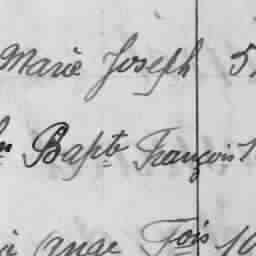 Marie Joseph 5
Bapte François 1
Ange Fois 10